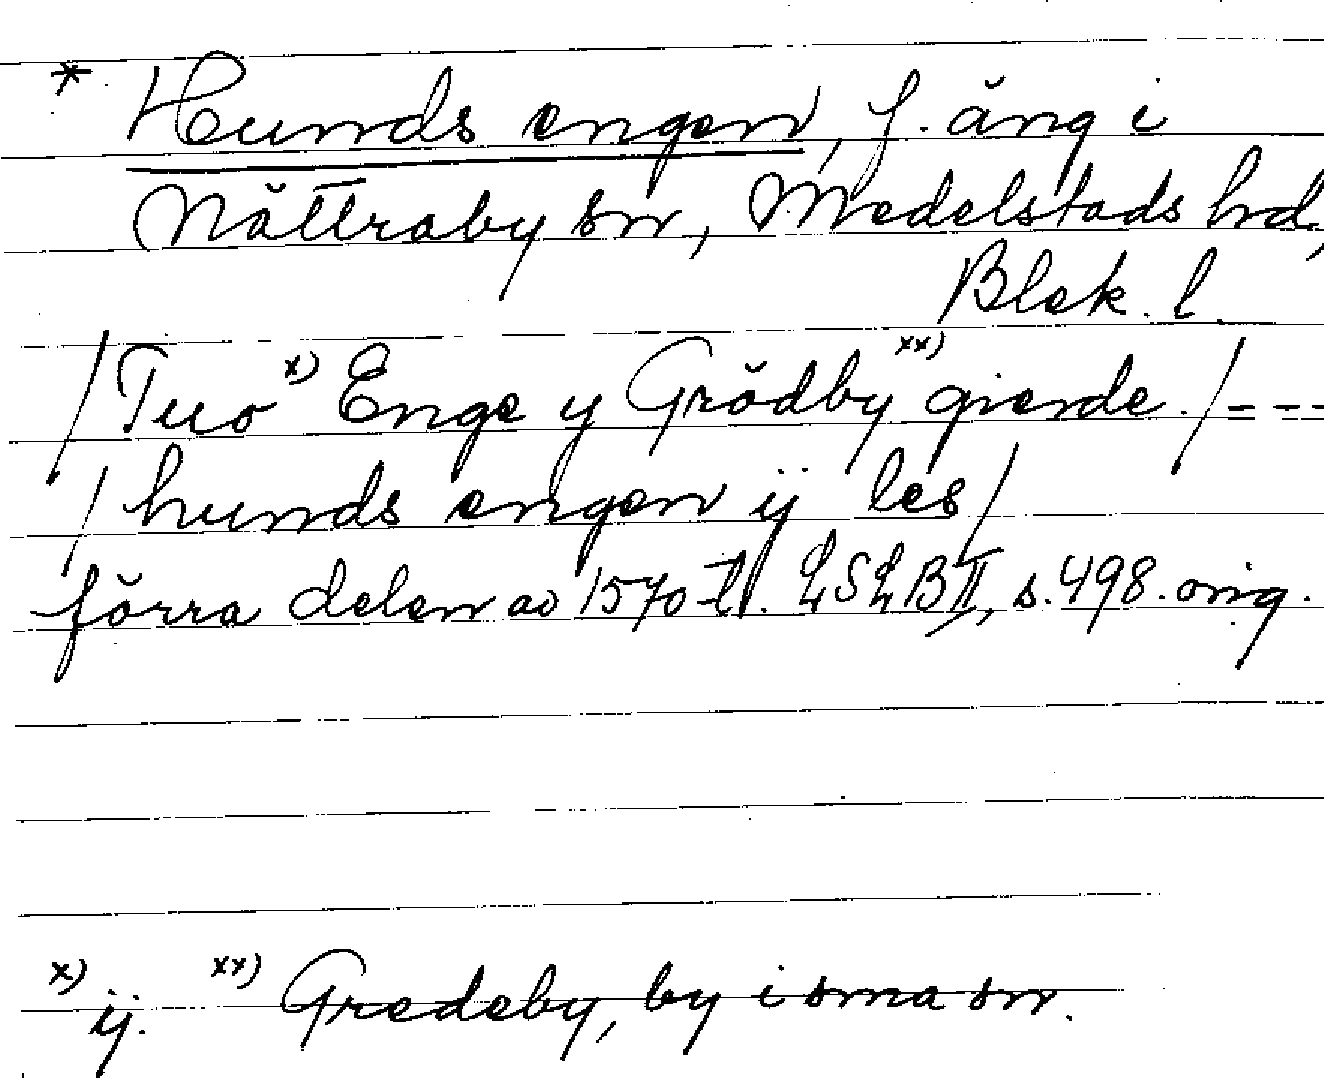 * Hunds engen, f. äng i
Nättraby sn, Medelstads hd,
Blek. l.
/Tuo x) Enge y Grödby xx) gierde./---
/hunds engen ij les/
förra delen av 1570-t. LSLB II, s. 498. orig.
x) ij. xx) Gredeby, by i sma sn.